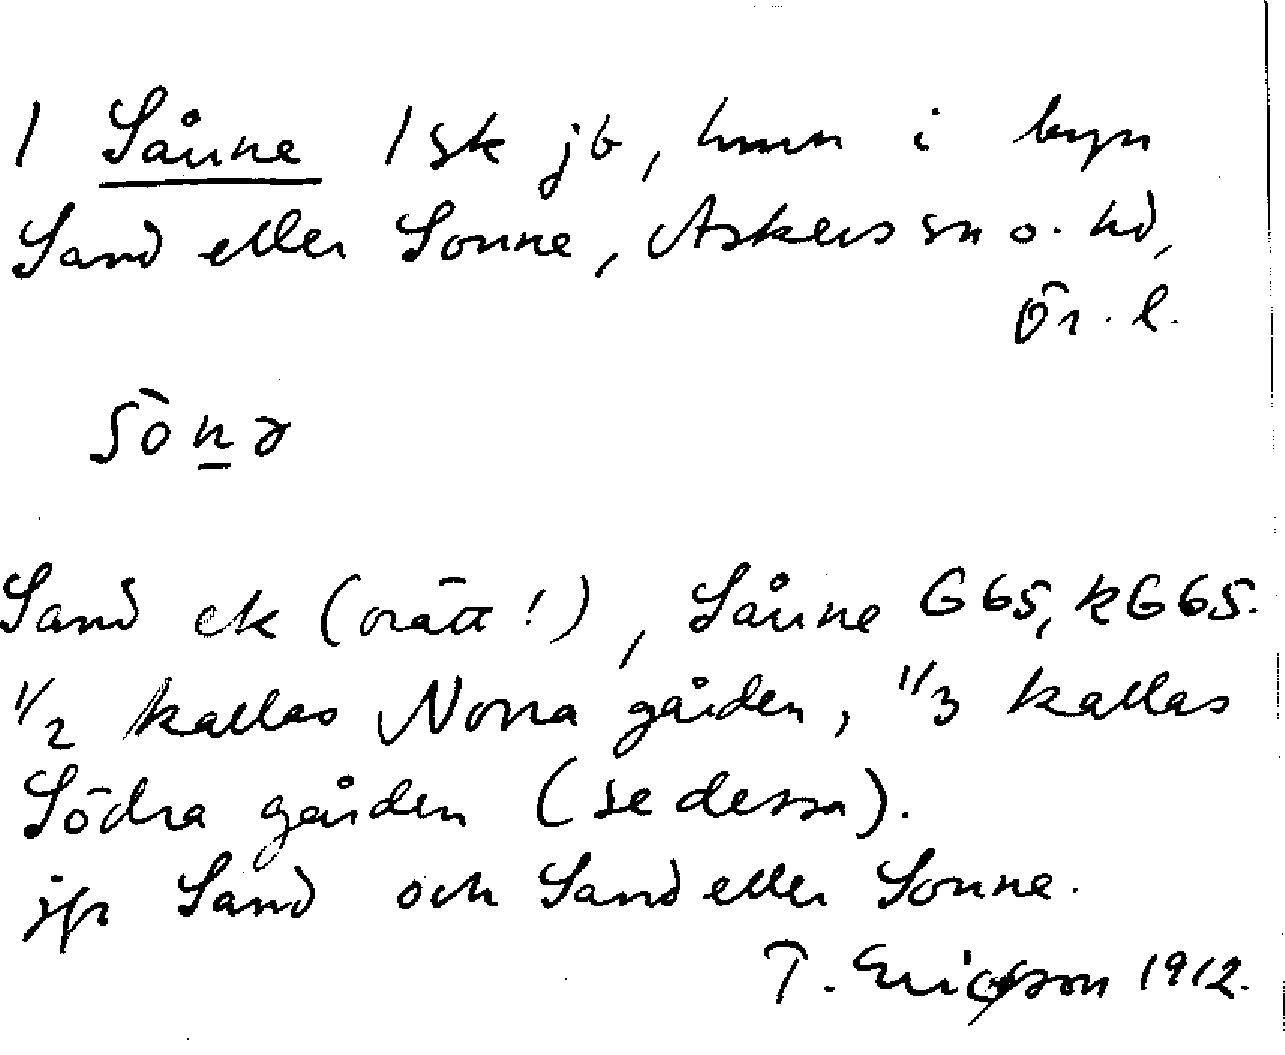 1 Sånne 1 sk jb, hmn i byn
Sand eller Sonne, Askers sn o. hd,
Ör. l.
sònə
Sand ek (orätt!), Sånne G65, kG65.
1/2 kallas Norra gården, 1/3 kallas
Södra gården (se dessa).
jfr Sand och Sand eller Sonne.
T. Ericsson 1912.